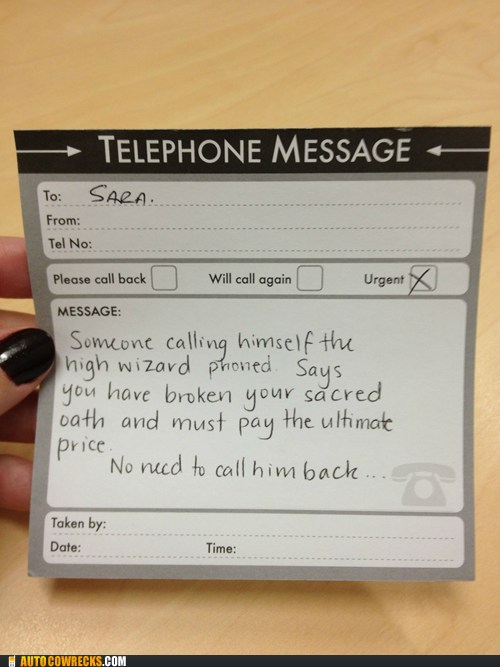 TELEPHONE MESSAGE
To: SARA.
From:
Tel No:
Please call back Will call again Urgent X
MESSAGE:
Someone calling himself the
high wizard phoned. Says
you have broken your sacred
oath and must pay the ultimate
price.
No need to call him back...
Taken by:
Date: Time:
AUTOCOWRECKS.COM